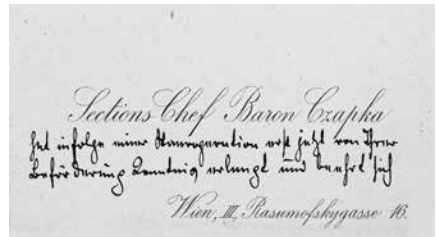 Sections Chef Baron Czapka
hat infolge einer Staroperation erst jetzt von Ihrer
Beförderung Kenntnis erlangt und beehrt sich
Wien, III., Rasumofskygasse 16.